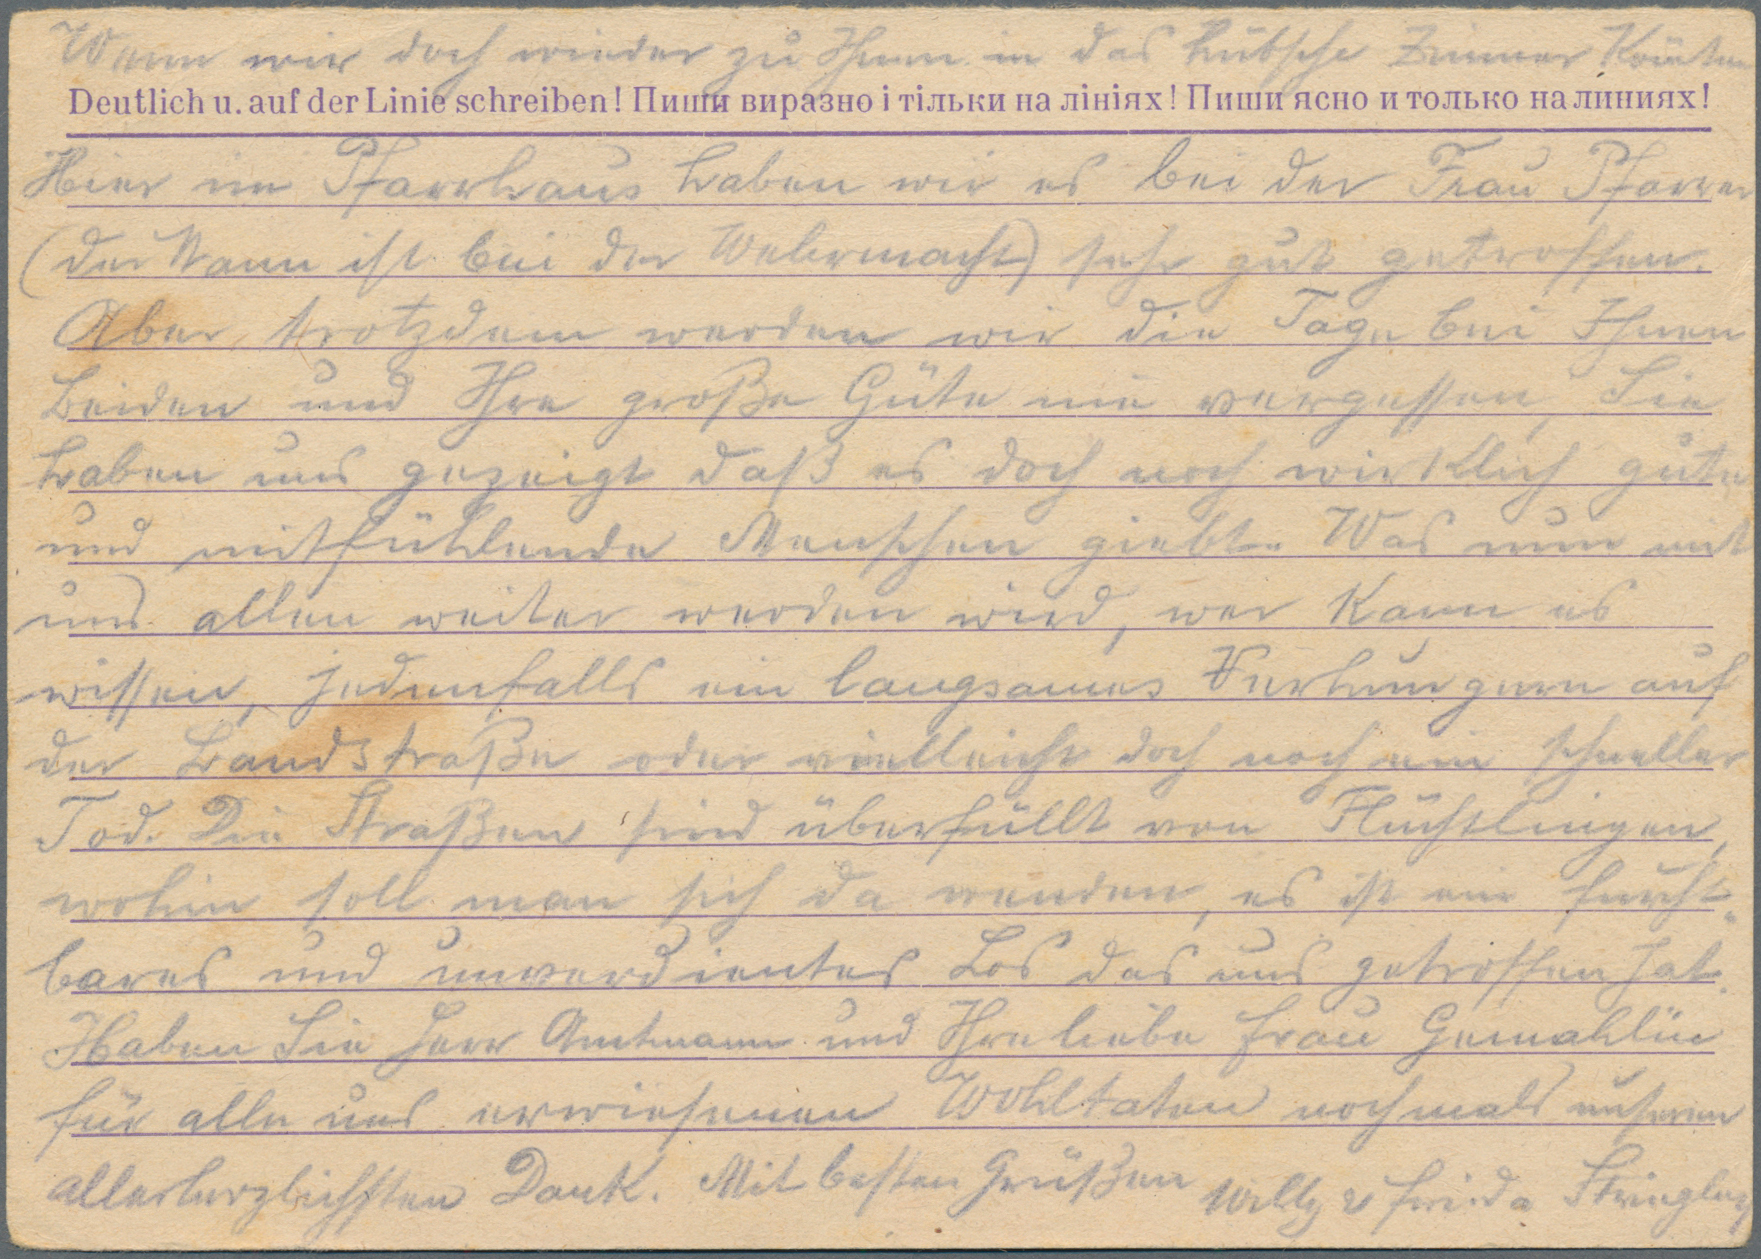 Wenn wir doch wieder zu Ihnen in das hübsche Zimmer könnten
Deutlich u. auf der Linie schreiben! Пиши виразно і тільки на лініях! Пиши ясно и только на линиях!
Hier im Pfarrhaus haben wir es bei der Frau Pfarrer
(der Mann ist bei der Wehrmacht) sehr gut getroffen.
Aber trotzdem werden wir die Tage bei Ihnen
Beiden und Ihre große Güte nie vergessen, Sie
haben uns gezeigt daß es doch noch wirklich gute
und mitfühlende Menschen giebt. Was nun mit
uns allen weiter werden wird, wer kann es
wissen, jedenfalls ein langsames Verhungern auf
der Landstraße oder vielleicht doch noch ein schneller
Tod. Die Straßen sind überfüllt von Flüchtlingen,
wohin soll man sich da wenden, es ist ein furcht-
bares und unverdientes Los das uns getroffen hat.
Haben Sie Herr Amtmann und Ihre liebe Frau Gemahlin
für alle uns erwiesenen Wohltaten nochmals unseren
allerherzlichsten Dank. Mit besten Grüßen Willy u Frieda